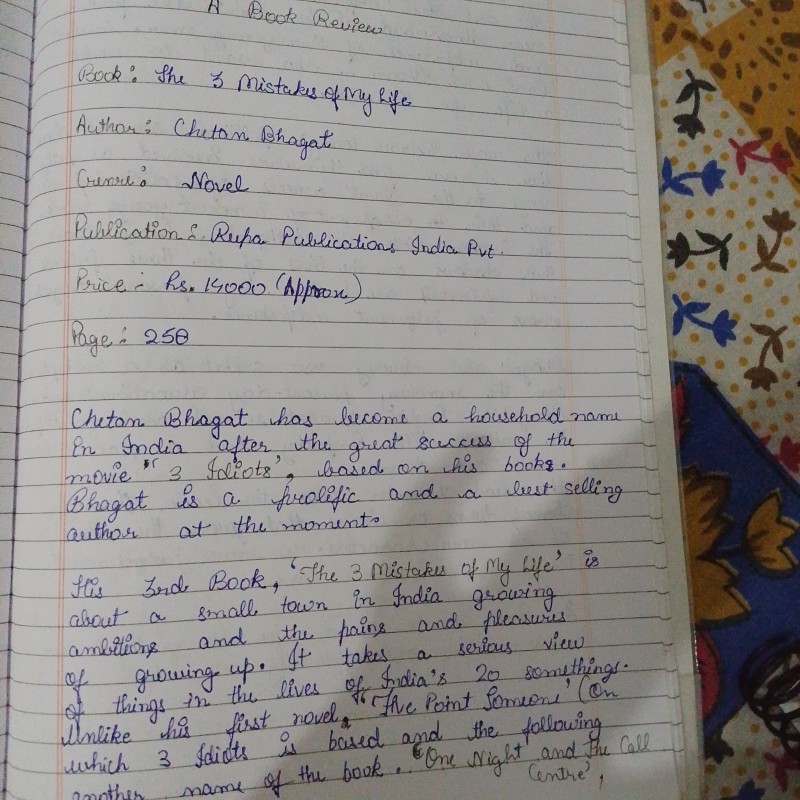 A Book Review
Book: The 3 Mistakes of My Life
Author: Chetan Bhagat
Genre: Novel
Publication: Rupa Publications India Pvt.
Price - Rs. 14000 (Approx)
Page: 258
Chetan Bhagat has become a household name
in India after the great success of the
movie "3 Idiots', based on his books.
Bhagat is a prolific and a best selling
author at the moment.
His 3rd Book, 'The 3 Mistakes of My Life' is
about a small town in India growing
ambitions and the pains and pleasures
of growing up. It takes a serious view
of things in the lives of India's 20 somethings.
Unlike his first novel, "Five Point Someone' (On
which 3 Idiots is based and the following
another name of the book. "One Night and The Call
Centre',